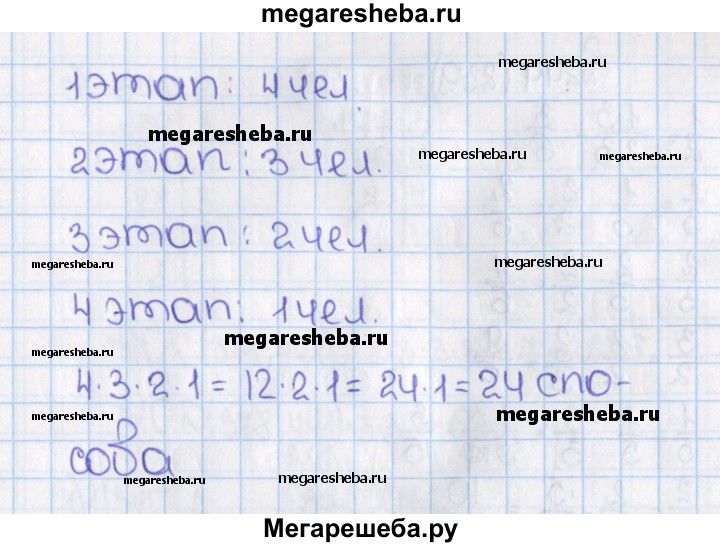 megaresheba.ru
megaresheba.ru
1 этап: 4 чел.
megaresheba.ru
megaresheba.ru
megaresheba.ru
2 этап: 3 чел.
3 этап: 2 чел.
megaresheba.ru
megaresheba.ru
4 этап: 1 чел.
megaresheba.ru
megaresheba.ru
4·3·2·1 = 12·2·1 = 24·1 = 24 спо-
megaresheba.ru
megaresheba.ru
соба
megaresheba.ru
megaresheba.ru
Мегарешеба.ру